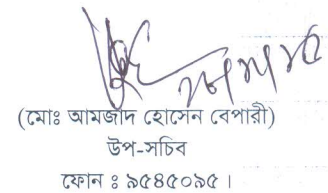 (মোঃ আমজাদ হোসেন বেপারী)
উপ-সচিব
ফোন ঃ ৯৫৪৫০৯৫।